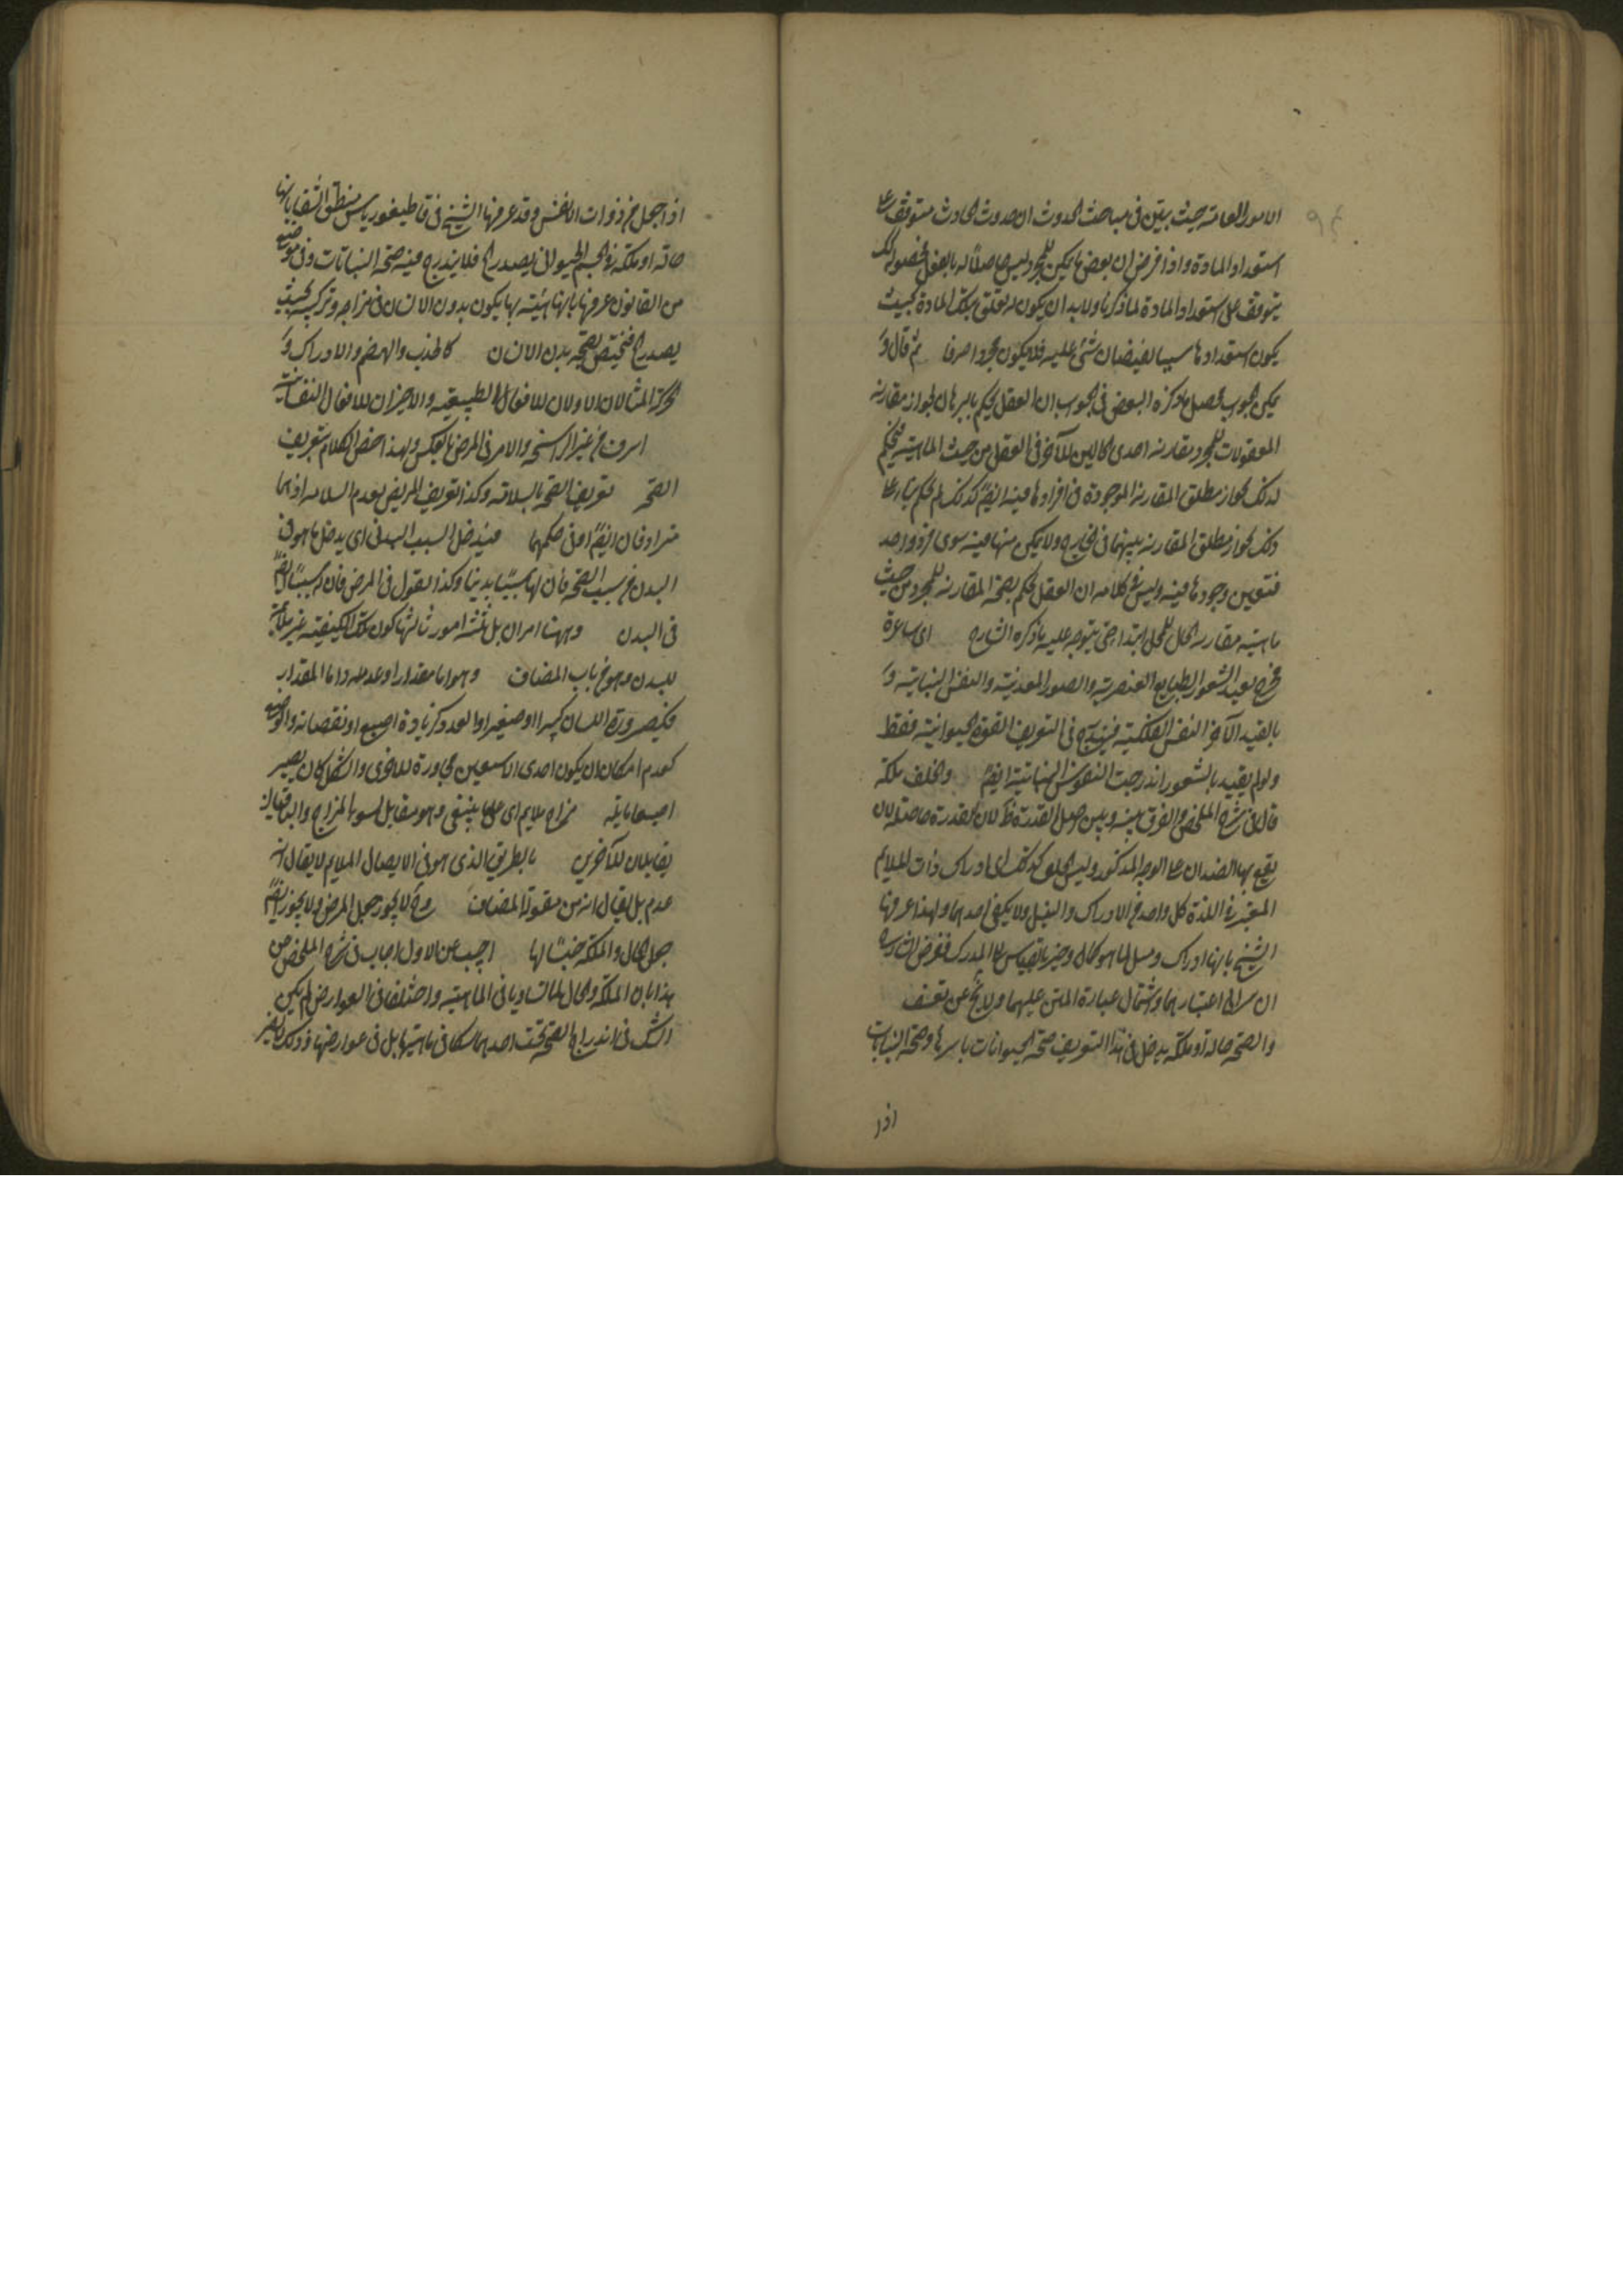 الامور العامة حيث بين فى مباحث الحدوث ان حدوث الحادث متوقف على
استعداد المادة واذا فرض ان بعض ما يمكن للمجرد ليس حاصلا له بالفعل فحصوله
يتوقف على استعداد المادة لما ذكرنا ولابد ان يكون له تعلق بتلك المادة بحيث
يكون استعدادها سببا لفيضان شئ عليه فلا يكون مجردا صرفا ثم قال و
يمكن الجواب بحصل ما ذكره البعض فى الجواب ان العقل يحكم بالبرهان لجواز مقارنة
المعقولات للمجرد مقارنة احدى الحالين للآخر فى العقل من حيث الماهية فيحكم
لذلك بجواز مطلق المقارنة الموجودة فى افرادها فيه ايضا كذلك لم يحكم بناء على
ذلك بجواز مطلق المقارنة بينهما فى الخارج ولا يمكن منها فيه سوى فرد واحد
فتعين وجودها فيه وليس فى كلامه ان العقل يحكم بصحة المقارنة للمجرد من حيث
ماهية مقارنة الحال للمحل ابتداء حتى يتوجه عليه ما ذكره الشارح اى ساعرة
فخرج بقيد الشعور الطبايع العنصرية والصور المعدنية والنفس النباتية و
بالقيد الآخر النفس الفلكية فيندرج فى التعريف القوة الحيوانية فقط
ولو لم يقيد بالشعور اندرجت النفوس النباتية ايضا والخلف ملكة
قال فى شرح الملخص والفرق بينه وبين القدرة ظ لان القدرة حاصلة لان
يقع بها الضدان على الوجه المذكور وليس الخلق كذلك اى ادراك ذات الملايم
المعتبر فى اللذة كل واحد من الادراك والنيل ولا يكفى احدهما ولهذا عرفها
الشيخ بانها ادراك ونيل لما هو كمال وخير بالقياس على المدرك فغرض الشارح
ان اعتبارهما واشتمال عبارة المتن عليهما ولا يخ عن تعسف
والصحة حالة او ملكة يدخل فى هذا التعريف صحة الحيوانات باسرها وصحة النباتات
اذا
اذا جعل من ذوات الانفس وقد عرفها الشيخ فى قاطيغورياس منطق الشفا بانها
حالة او ملكة فى الجسم الحيوانى يصدر الخ فلا يندرج فيه صحة النباتات وفى موضع
من القانون عرفها بانها هيئة بها يكون بدن الانسان فى مزاجه وتركيبه بحيث
يصدر الخ فيختص الصحة ببدن الانسان كالجذب والهضم والادراك و
الحركة المثالان الاولان للافعال الطبيعية والاخيران للافعال النفسانية
اسرف من غير الراسخة والامر فى المرض بالعكس ولهذا خص الكلام بتعريف
الصحة تعريف الصحة بالسلامة وكذا تعريف المريض بعدم السلامة اذ هما
مترادفان ايضا او فى حكمهما فيدخل السبب البدنى اى يدخل ما هو فى
البدن من سبب الصحة فان لها سببا بدنيا وكذا القول فى المرض فان له سببا ايضا
فى البدن وههنا امران بل ثلثة امور ثالثها كون تلك الكيفية غير ملائمة
للبدن وهو من باب المضاف وهو اما مقدار او عدد اما المقدار
فكصيرورة اللسان كبيرا او صغيرا والعدد كزيادة اصبع او نقصانه والوضع
كعدم امكان ان يكون احدى الاصبعين مجاورة للاخرى والشكل كان يصير
اصبعا مايلة مزاج ملايم اى على ما ينبغى وهو مقابل لسوء المزاج والباقيان
يقابلان للآخرين بالطريق الذى هو فى الايصال الملايم لا يقال انه
عدم بل يقال انه من مقولة المضاف وح لا يجوز جعل المرض ولا يجوز ايضا
جعل الحال والملكة جنسا لها اجيب عن الاول اجاب فى شرح الملخص عن
هذا بان الملكة والحال لما تساويا فى الماهية واختلفا فى العوارض لم يكن
الشك فى اندراج الصحة تحت احدهما شكا فى ماهيتها بل فى عوارضها وذلك